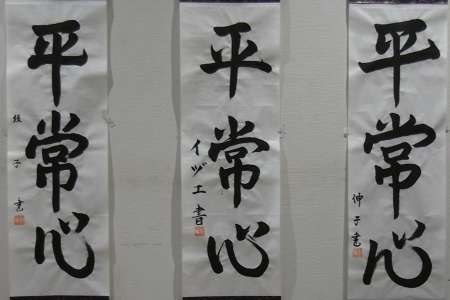 平常心
子書
平常心
イヅエ書
平常心
伸子書